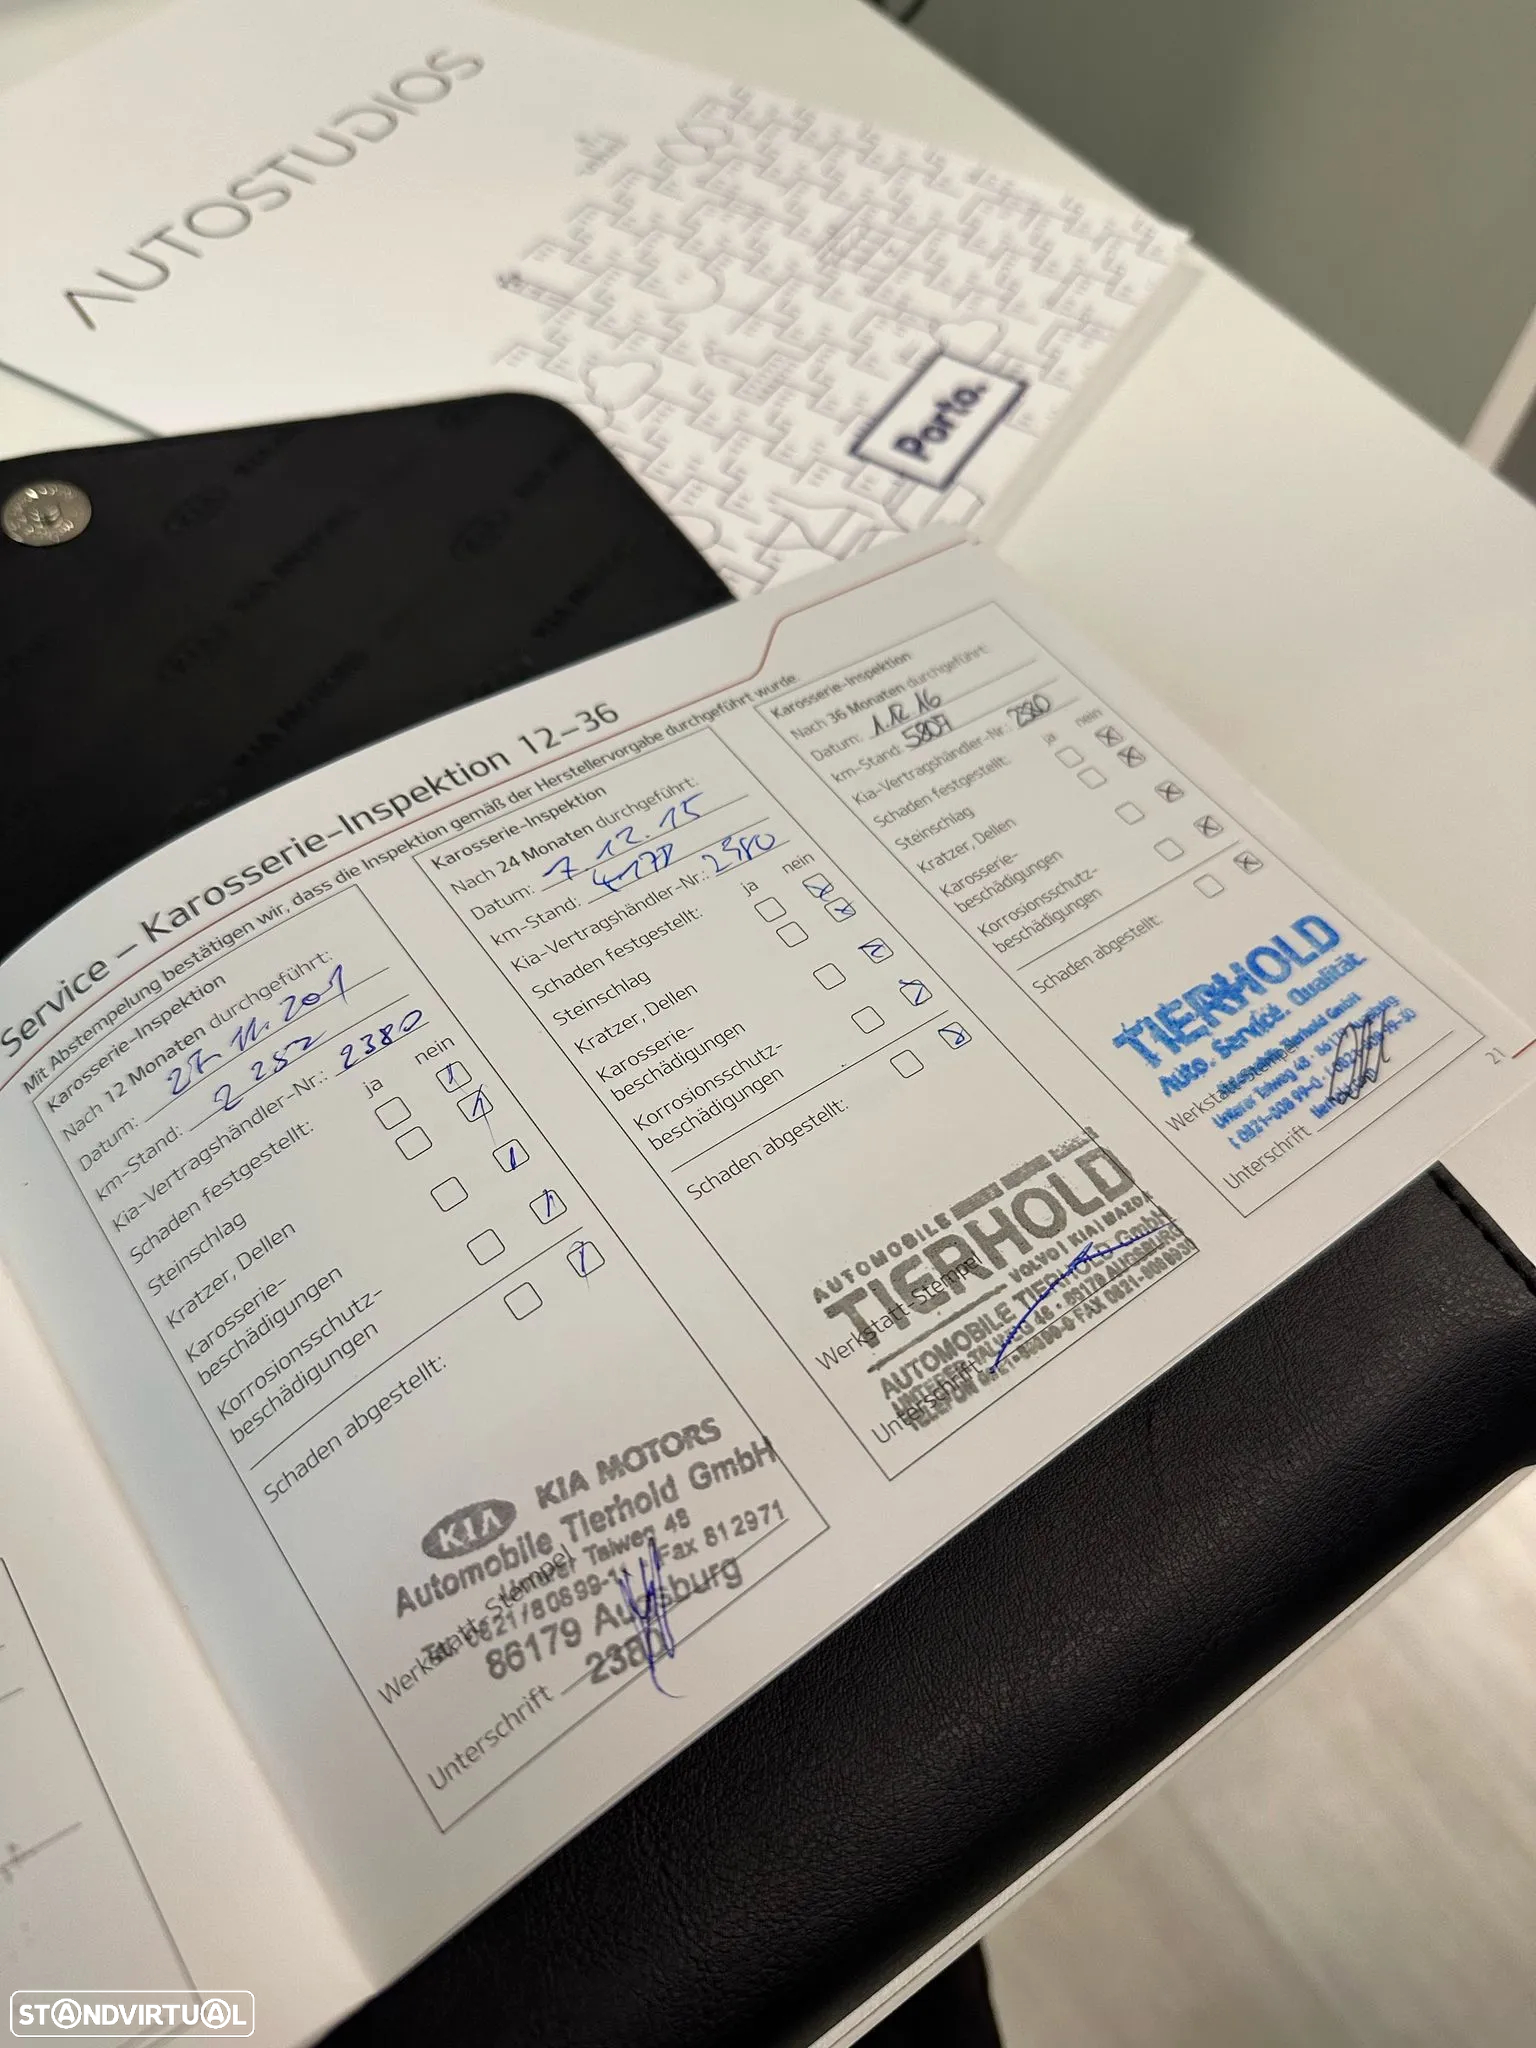 AUTOSTUDIOS
Porto.
Service – Karosserie-Inspektion 12–36
Mit Abstempelung bestätigen wir, dass die Inspektion gemäß der Herstellervorgabe durchgeführt wurde.
Karosserie-Inspektion
Nach 12 Monaten durchgeführt:
Datum:
km-Stand: 2 252
Kia-Vertragshändler-Nr.: 2380
Schaden festgestellt: ja nein
Steinschlag
Kratzer, Dellen
Karosserie-
beschädigungen
Korrosionsschutz-
beschädigungen
Schaden abgestellt:
KIA KIA MOTORS
Automobile Tierhold GmbH
Unterer Talweg 48
Tel. 0821/80899-11 Fax 812971
86179 Augsburg
2380
Werkstatt-Stempel
Unterschrift
Karosserie-Inspektion
Nach 24 Monaten durchgeführt:
Datum: 7.12.15
km-Stand:
Kia-Vertragshändler-Nr.: 2380
Schaden festgestellt: ja nein
Steinschlag
Kratzer, Dellen
Karosserie-
beschädigungen
Korrosionsschutz-
beschädigungen
Schaden abgestellt:
AUTOMOBILE
TIERHOLD
VOLVO | KIA | MAZDA
AUTOMOBILE TIERHOLD GmbH
UNTERER TALWEG 48 • 86179 AUGSBURG
TELEFON FAX
Werkstatt-Stempel
Unterschrift
Karosserie-Inspektion
Nach 36 Monaten durchgeführt:
Datum: 1.12.16
km-Stand: 5807
Kia-Vertragshändler-Nr.: 2380
Schaden festgestellt: ja nein
Steinschlag
Kratzer, Dellen
Karosserie-
beschädigungen
Korrosionsschutz-
beschädigungen
Schaden abgestellt:
TIERHOLD
Auto. Service. Qualität.
Tierhold GmbH
Unterer Talweg 48 · 86179
t 0821-808 99-0
Werkstatt-Stempel
Unterschrift
21
STANDVIRTUAL